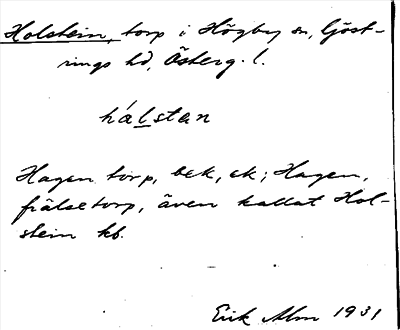 Holstein, torp i Högby sn, Göst-
rings hd, Österg. l.
hálstan
Hagen torp, bek, ek; Hagen,
frälsetorp, även kallat Hol-
stein kb.
Erik Alm 1931